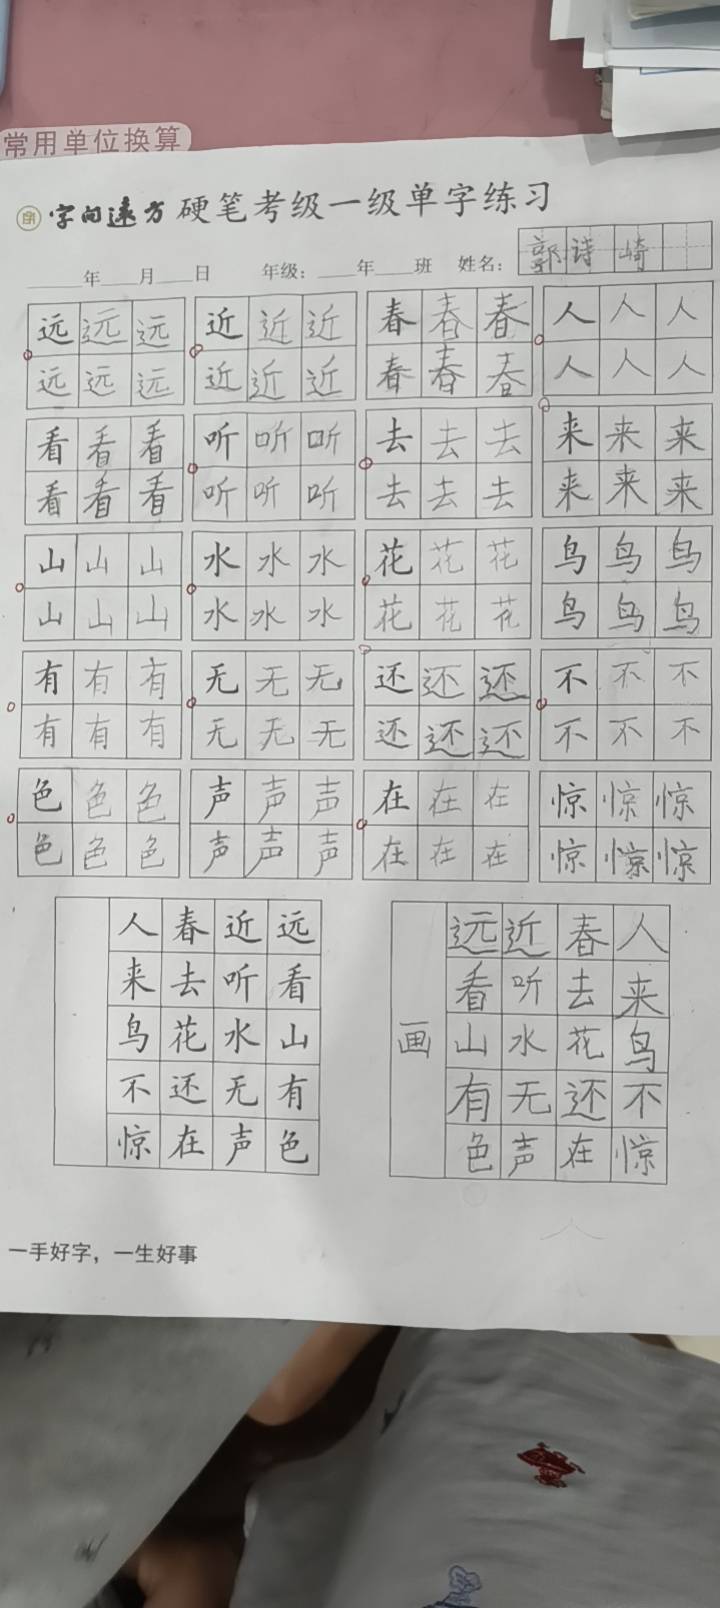 常用单位换算
字间远方 硬笔考级一级单字练习
年 月 日 年级： 年 班 姓名： 郭诗崎
远远远 近近近 春春春 人人人
远远远 近近近 春春春 人人人
看看看 听听听 去去去 来来来
看看看 听听听 去去去 来来来
山山山 水水水 花花花 鸟鸟鸟
山山山 水水水 花花花 鸟鸟鸟
有有有 无无无 还还还 不不不
有有有 无无无 还还还 不不不
色色色 声声声 在在在 惊惊惊
色色色 声声声 在在在 惊惊惊
人春近远
来去听看
鸟花水山
不还无有
惊在声色
画
远近春人
看听去来
山水花鸟
有无还不
色声在惊
一手好字，一生好事